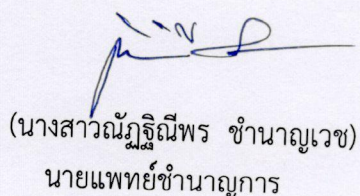 (นางสาวณัฏฐิณีพร ชำนาญเวช)
นายแพทย์ชำนาญการ